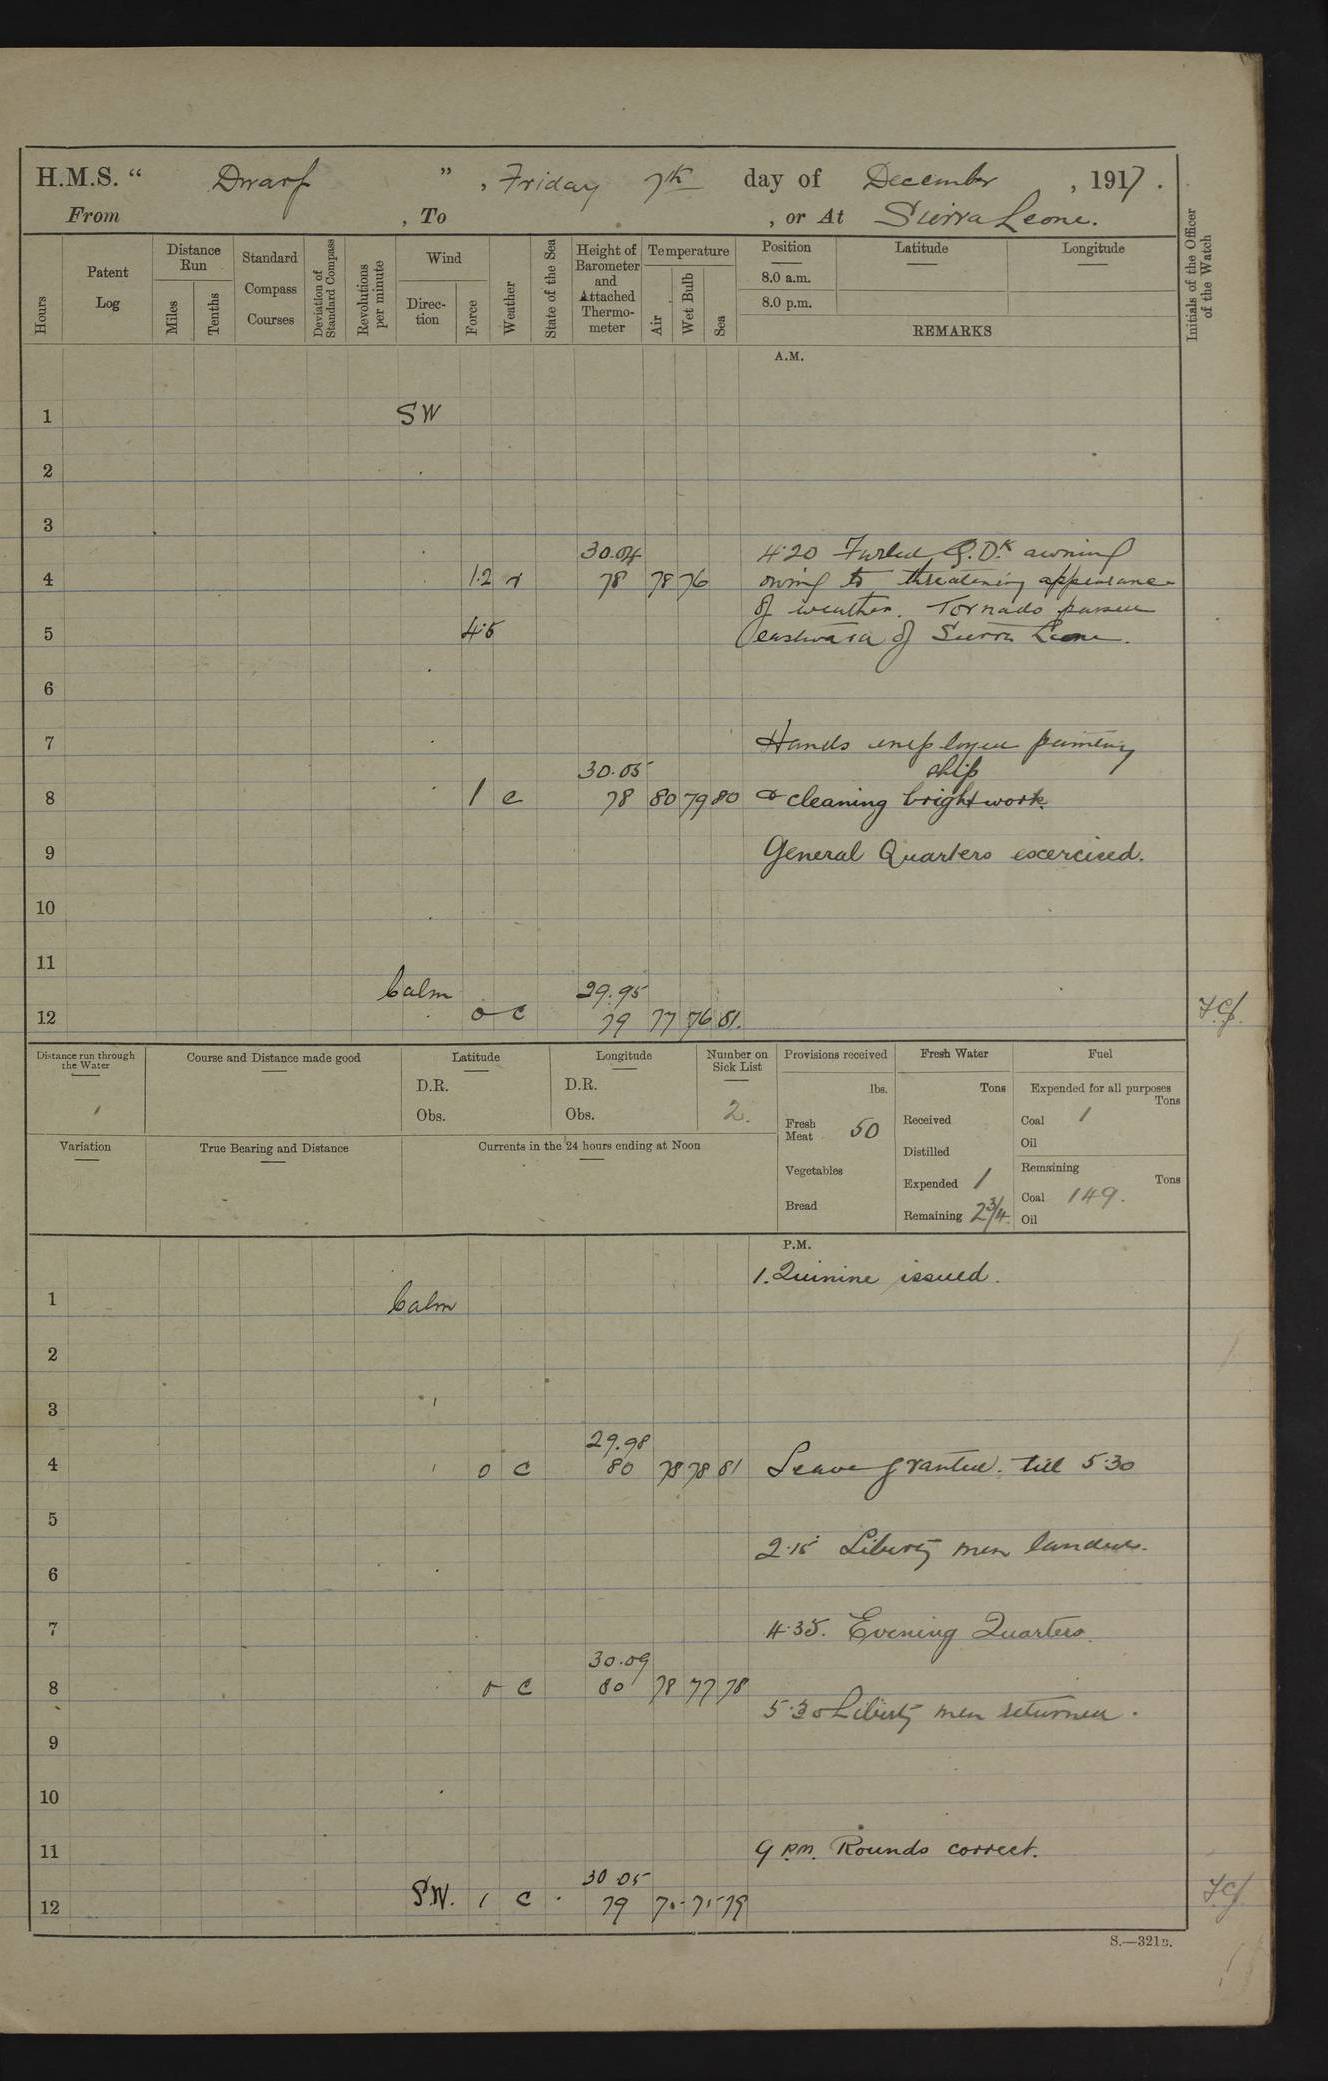 H.M.S. “ Dwarf ” , Friday 7th day of December , 1917 .
From , To , or At Sierra Leone.
Hours
Patent Log
Distance Run
Miles
Tenths
Standard Compass Courses
Deviation of Standard Compass
Revolutions per minute
Wind
Direc-tion
Force
Weather
State of the Sea
Height of Barometer and Attached Thermo-meter
Temperature
Air
Wet Bulb
Sea
Position
8.0 a.m.
8.0 p.m.
Latitude
Longitude
REMARKS
Initials of the Officer of the Watch
A.M.
1 SW
2
3
30.04 4.20 Furled Q.Dk awning
4 1.2 r 78 78 76 owing to threatening appearance
of weather. Tornado passed
5 4.5 eastward of Sierra Leone.
6
7 Hands employed painting
30.05 ship
8 1 c 78 80 79 80 & cleaning brightwork.
9 General Quarters excercised.
10
11
Calm 29.95
12 0 c 79 77 76 81.
Distance run through the Water
Course and Distance made good
Latitude
D.R.
Obs.
Longitude
D.R.
Obs.
Number on Sick List
2.
Provisions received
lbs.
Fresh Meat 50
Vegetables
Bread
Fresh Water
Tons
Received
Distilled
Expended 1
Remaining 2 3/4
Fuel
Expended for all purposes
Tons
Coal 1
Oil
Remaining
Tons
Coal 149.
Oil
Variation
True Bearing and Distance
Currents in the 24 hours ending at Noon
P.M.
1. Quinine issued.
1 Calm
2
3
29.98
4 0 c 80 78 78 81 Leave granted. till 5.30
5
2.15 Liberty men landed.
6
7 4.35. Evening Quarters.
30.09
8 0 c 80 78 77 78
5.30 Liberty men returned.
9
10
11 9 P.M. Rounds correct.
30 05
12 SW. 1 c 79 75 75 79
S.—321B.